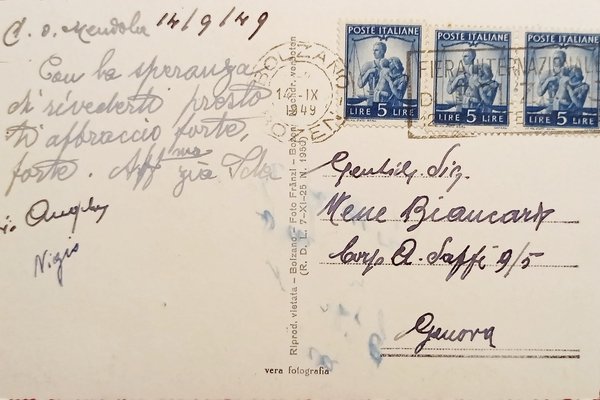 14/9/49
Con la speranza
di rivederti presto
ti abbraccio forte,
forte. Aff.ma zia
Nigio
BOLZANO BOZEN
IX
49
FIERA INTERNAZIONALE
POSTE ITALIANE
LIRE 5 LIRE
POSTE ITALIANE
LIRE 5 LIRE
POSTE ITALIANE
LIRE 5 LIRE
Gentil. Sig.
Biancardi
Corso A. Saffi 9/5
Genova
Riprod. vietata – Bolzano – Foto Fränzl – Bozen – Nachdr. verboten
(R. D. L. 7-XI-25 N. 1950)
vera fotografia